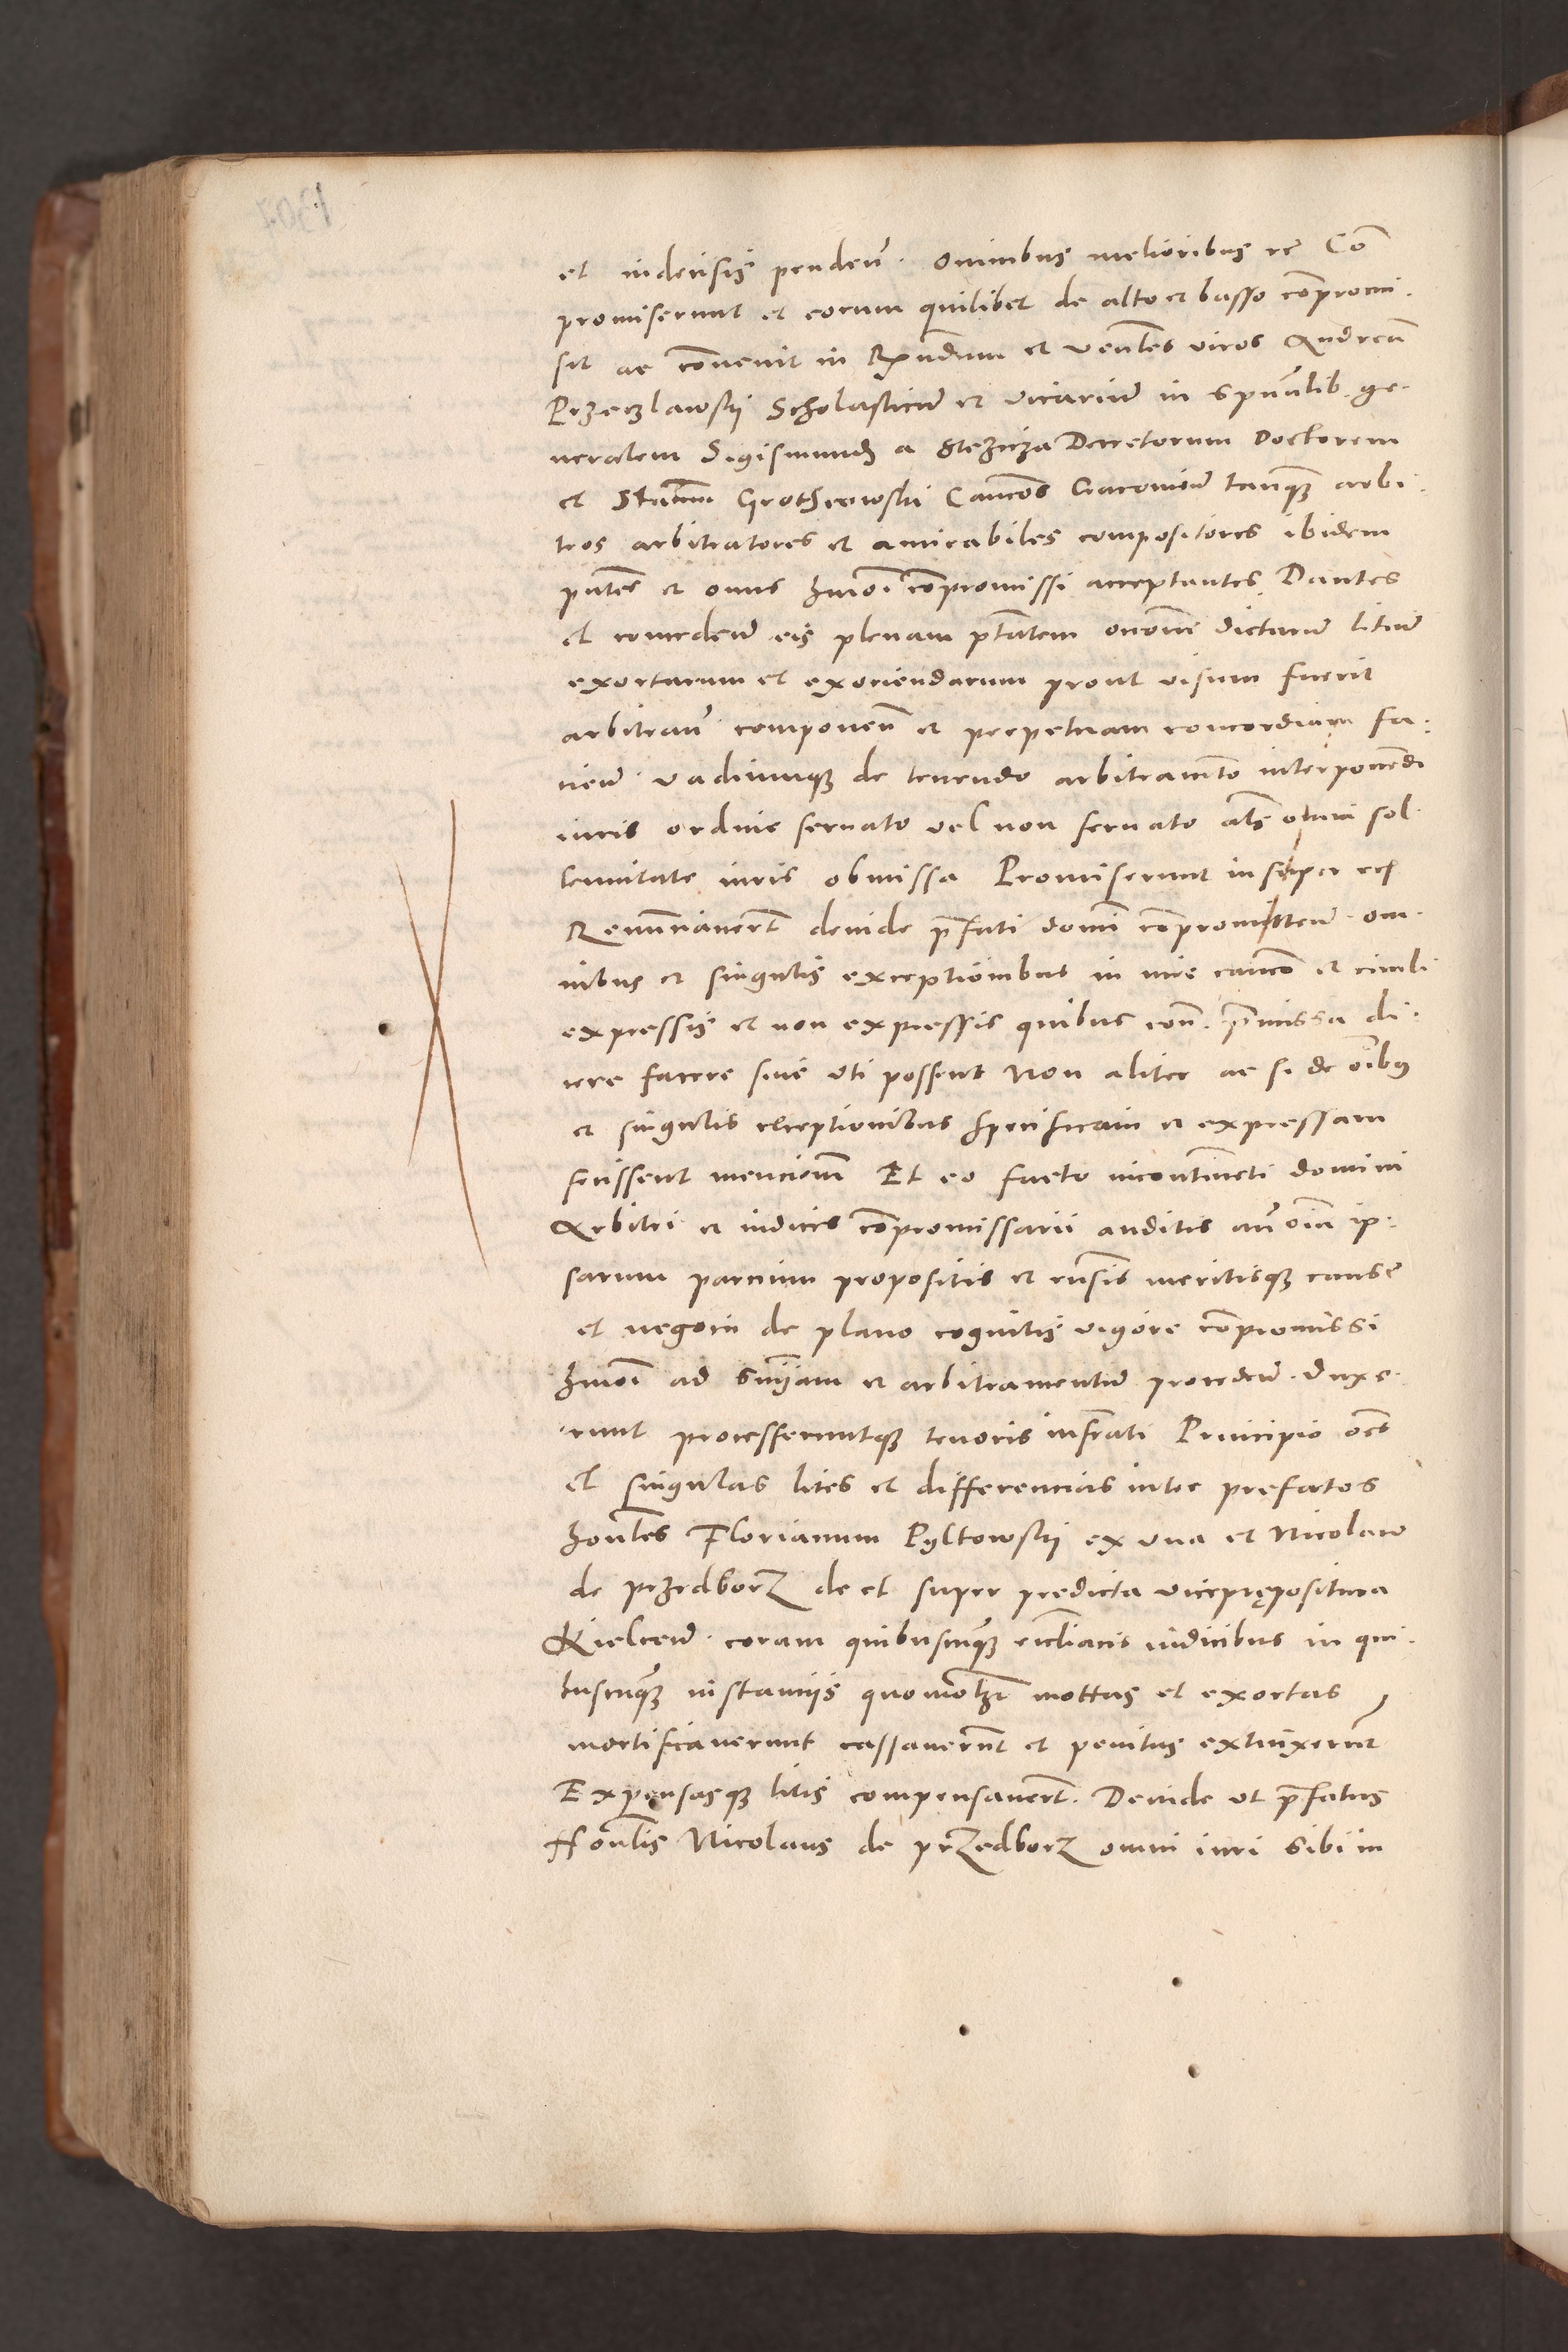 et indecisis pendeñ. omnibus melioribus rc̃ Cõ
promiserunt et eorum quilibet de alto et basso cõpromi.
sit ac cõvenit in Rñdum et veñles viros Andreã
Przeczlawskij Scholasticũ et vicariũ in spũalib. ge.
neralem Sigismundũ a Stezicza Decretorum Doctorem
et Stañm Grothkowski Canc̃os Cracovieñ tanq̃ arbi.
tros arbitratores et amicabiles compositores ibidem
pñtes et onus hm̃oi cõpromissi acceptantes. Dantes
et concedeñ eis plenam ptãtem om̃ dictarũ litiũ
exortarum et exoriendarum prout visum fuerit
arbitrañ componeñ et perpetuam concordiam fa.
cieñ vadiumq3 de tenendo arbitram̃to interponendi
iuris ordine servato vel non servato als̃ omni sol
lennitate iuris obmissa Promiserunt insuper rc̃
Renunciaverũt deinde p̃fati domĩ cõpromitteñ. om.
nibus et singulis exceptionibus in iure canc̃o et civili
expressis et non expressis quibus coñ. p̃missa di.
cere facere sive uti possent Non aliter ac si de oĩbus
et singulis exceptionibus specificam et expressam
fecissent mencionẽ Et eo facto incontinẽti domini
Arbitri et iudices cõpromissarii auditis añ oĩa ip.
sarum parcium propositis et respõsis meritisq3 cause
et negocii de plano cognitis vigore cõpromissi
hm̃oi ad sñiam et arbitramentũ procedeñ. duxe.
runt processeruntq3 tenoris infr̃ati Principio oẽs
et singulas lites et differencias inter prefatos
hoñles Florianum Pyltowskij ex una et Nicolaum
de przedborz de et super predicta viceprepositura
Kielceñ. coram quibuscũq3 eccliacis iudicibus in qui.
buscũq3 instanciis quomolz̃ mottas et exortas
mortificaverunt cassaverũt et penitus extinxerũt
Expensasq3 litis compensaverũt. Deinde ut p̃fatus
Hoñlis Nicolaus de przedborz omni iuri sibi in